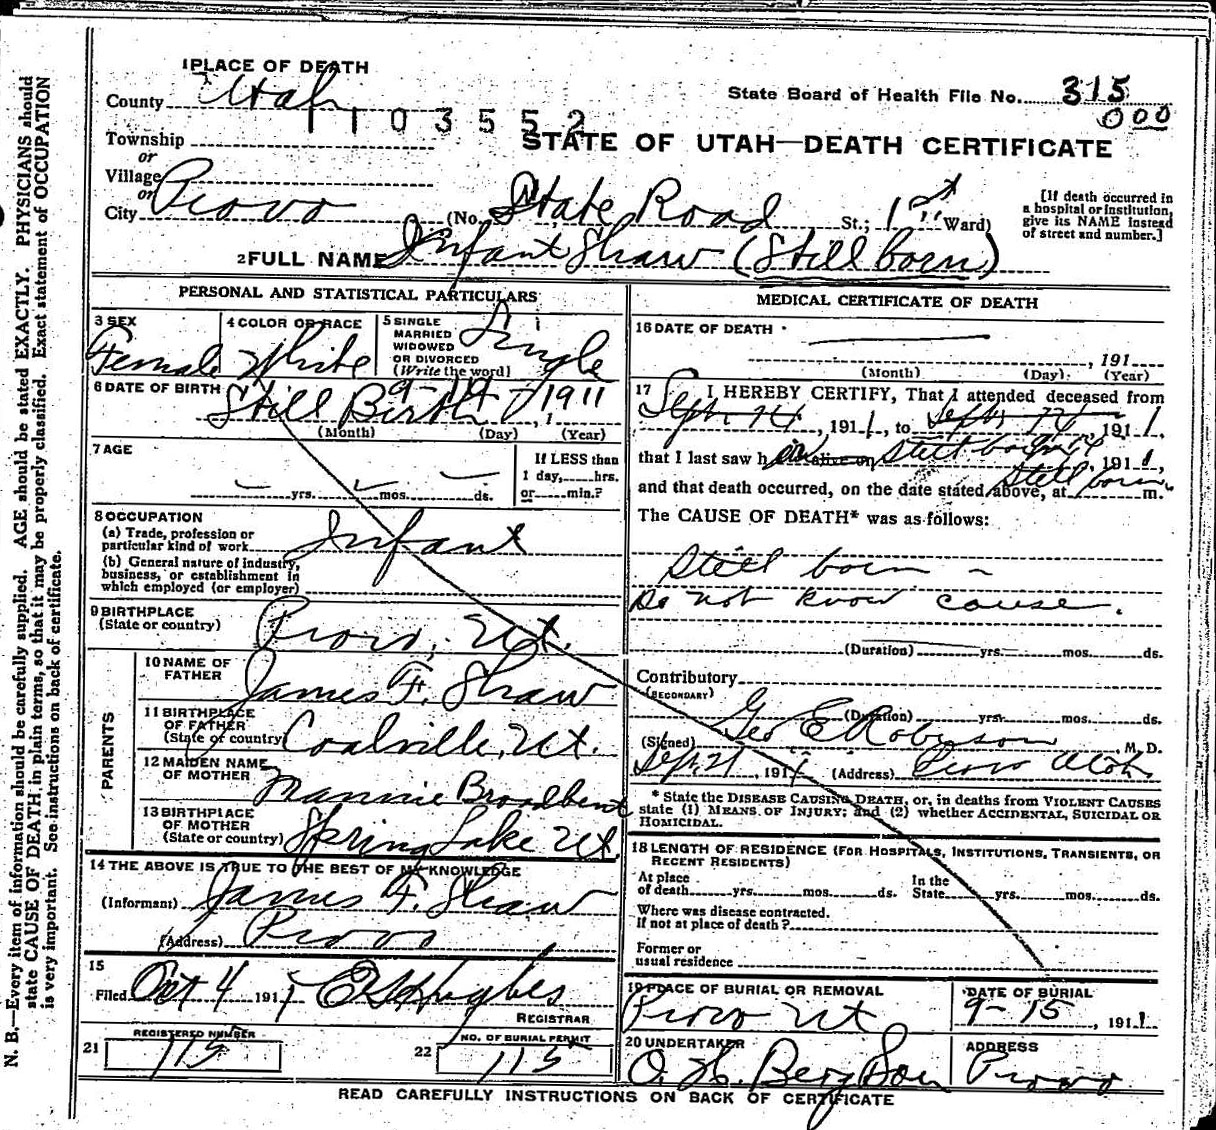 1 PLACE OF DEATH
County Utah
State Board of Health File No. 315
000
1103552
STATE OF UTAH—DEATH CERTIFICATE
Township
or
Village
or
City Provo (No. State Road St.; 1st Ward)
[If death occurred in a hospital or institution, give its NAME instead of street and number.]
2 FULL NAME Infant Shaw (Stillborn)
PERSONAL AND STATISTICAL PARTICULARS
3 SEX Female
4 COLOR OR RACE White
5 SINGLE MARRIED WIDOWED OR DIVORCED (Write the word) Single
6 DATE OF BIRTH Still Birth 9-14-1911
(Month) (Day) (Year)
7 AGE
yrs. mos. ds.
If LESS than 1 day, hrs. or min.?
8 OCCUPATION
(a) Trade, profession or particular kind of work Infant
(b) General nature of industry, business, or establishment in which employed (or employer)
9 BIRTHPLACE
(State or country) Provo, Ut.
PARENTS
10 NAME OF FATHER James F. Shaw
11 BIRTHPLACE OF FATHER (State or country) Coalville, Ut.
12 MAIDEN NAME OF MOTHER Mannie Broadbent
13 BIRTHPLACE OF MOTHER (State or country) Spring Lake Ut.
14 THE ABOVE IS TRUE TO THE BEST OF MY KNOWLEDGE
(Informant) James F. Shaw
(Address) Provo
15
Filed Oct 4 1911 Hughes
REGISTRAR
21 REGISTERED NUMBER 115
22 NO. OF BURIAL PERMIT 115
MEDICAL CERTIFICATE OF DEATH
16 DATE OF DEATH
, 191
(Month) (Day) (Year)
17 I HEREBY CERTIFY, That I attended deceased from
Sept. 14, 1911, to Sept. 14, 1911,
that I last saw h er alive on Still born 9/14, 1911,
and that death occurred, on the date stated above, at Still born m.
The CAUSE OF DEATH* was as follows:
Still born -
Do not know cause.
(Duration) yrs. mos. ds.
Contributory
(SECONDARY)
(Duration) yrs. mos. ds.
(Signed) Geo E Robinson, M. D.
Sept. 21, 1911 (Address) Provo Utah
* State the DISEASE CAUSING DEATH, or, in deaths from VIOLENT CAUSES state (1) MEANS OF INJURY; and (2) whether ACCIDENTAL, SUICIDAL OR HOMICIDAL.
18 LENGTH OF RESIDENCE (FOR HOSPITALS, INSTITUTIONS, TRANSIENTS, OR RECENT RESIDENTS)
At place of death yrs. mos. ds. In the State yrs. mos. ds.
Where was disease contracted. If not at place of death?
Former or usual residence
19 PLACE OF BURIAL OR REMOVAL Provo Ut
DATE OF BURIAL 9-15, 1911
20 UNDERTAKER O. H. Berg & Son
ADDRESS Provo
READ CAREFULLY INSTRUCTIONS ON BACK OF CERTIFICATE
N. B.—Every item of information should be carefully supplied. AGE should be stated EXACTLY. PHYSICIANS should
state CAUSE OF DEATH, in plain terms, so that it may be properly classified. Exact statement of OCCUPATION
is very important. See instructions on back of certificate.